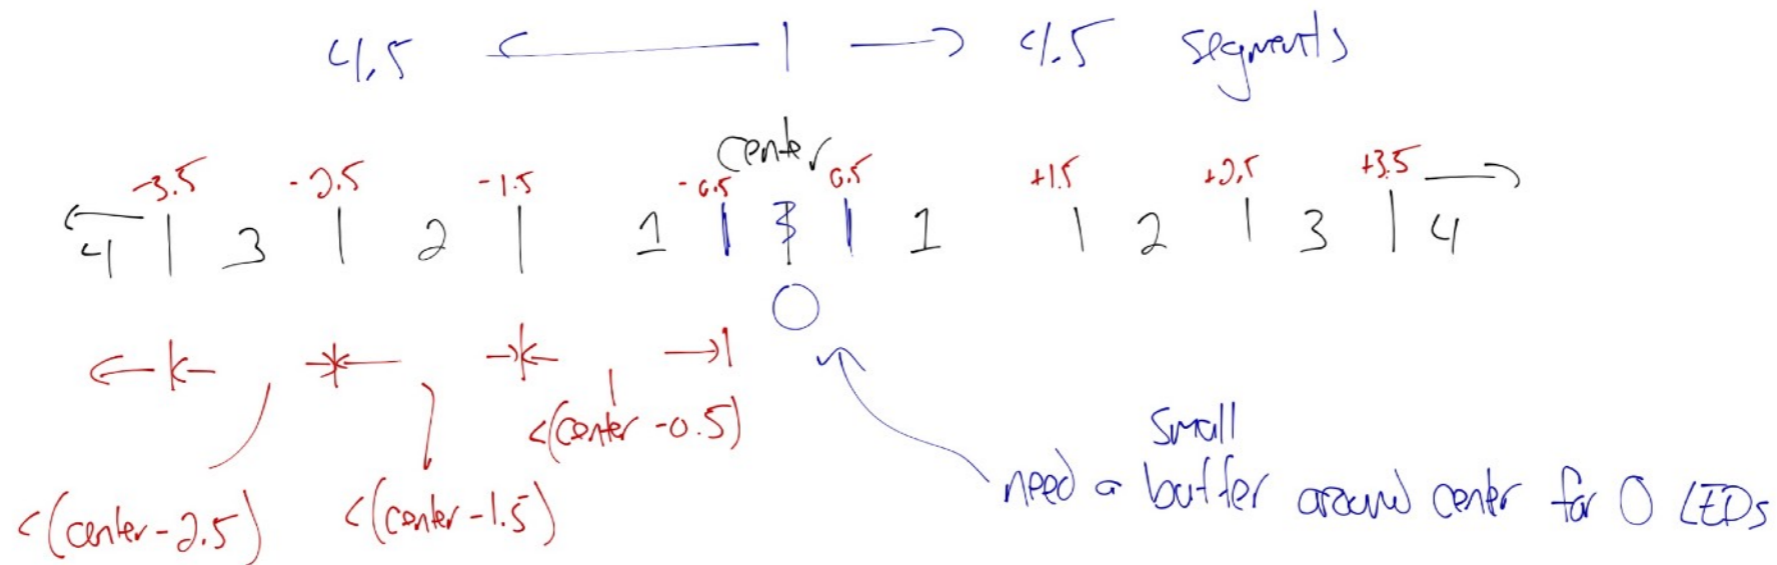 4.5 ← | → 4.5 segments
center
-3.5 -2.5 -1.5 -0.5 0.5 +1.5 +2.5 +3.5
← 4 | 3 | 2 | 1 | | | 1 | 2 | 3 | 4 →
0
<(center -0.5)
<(center-2.5) <(center-1.5)
small
need a buffer around center for 0 LEDs